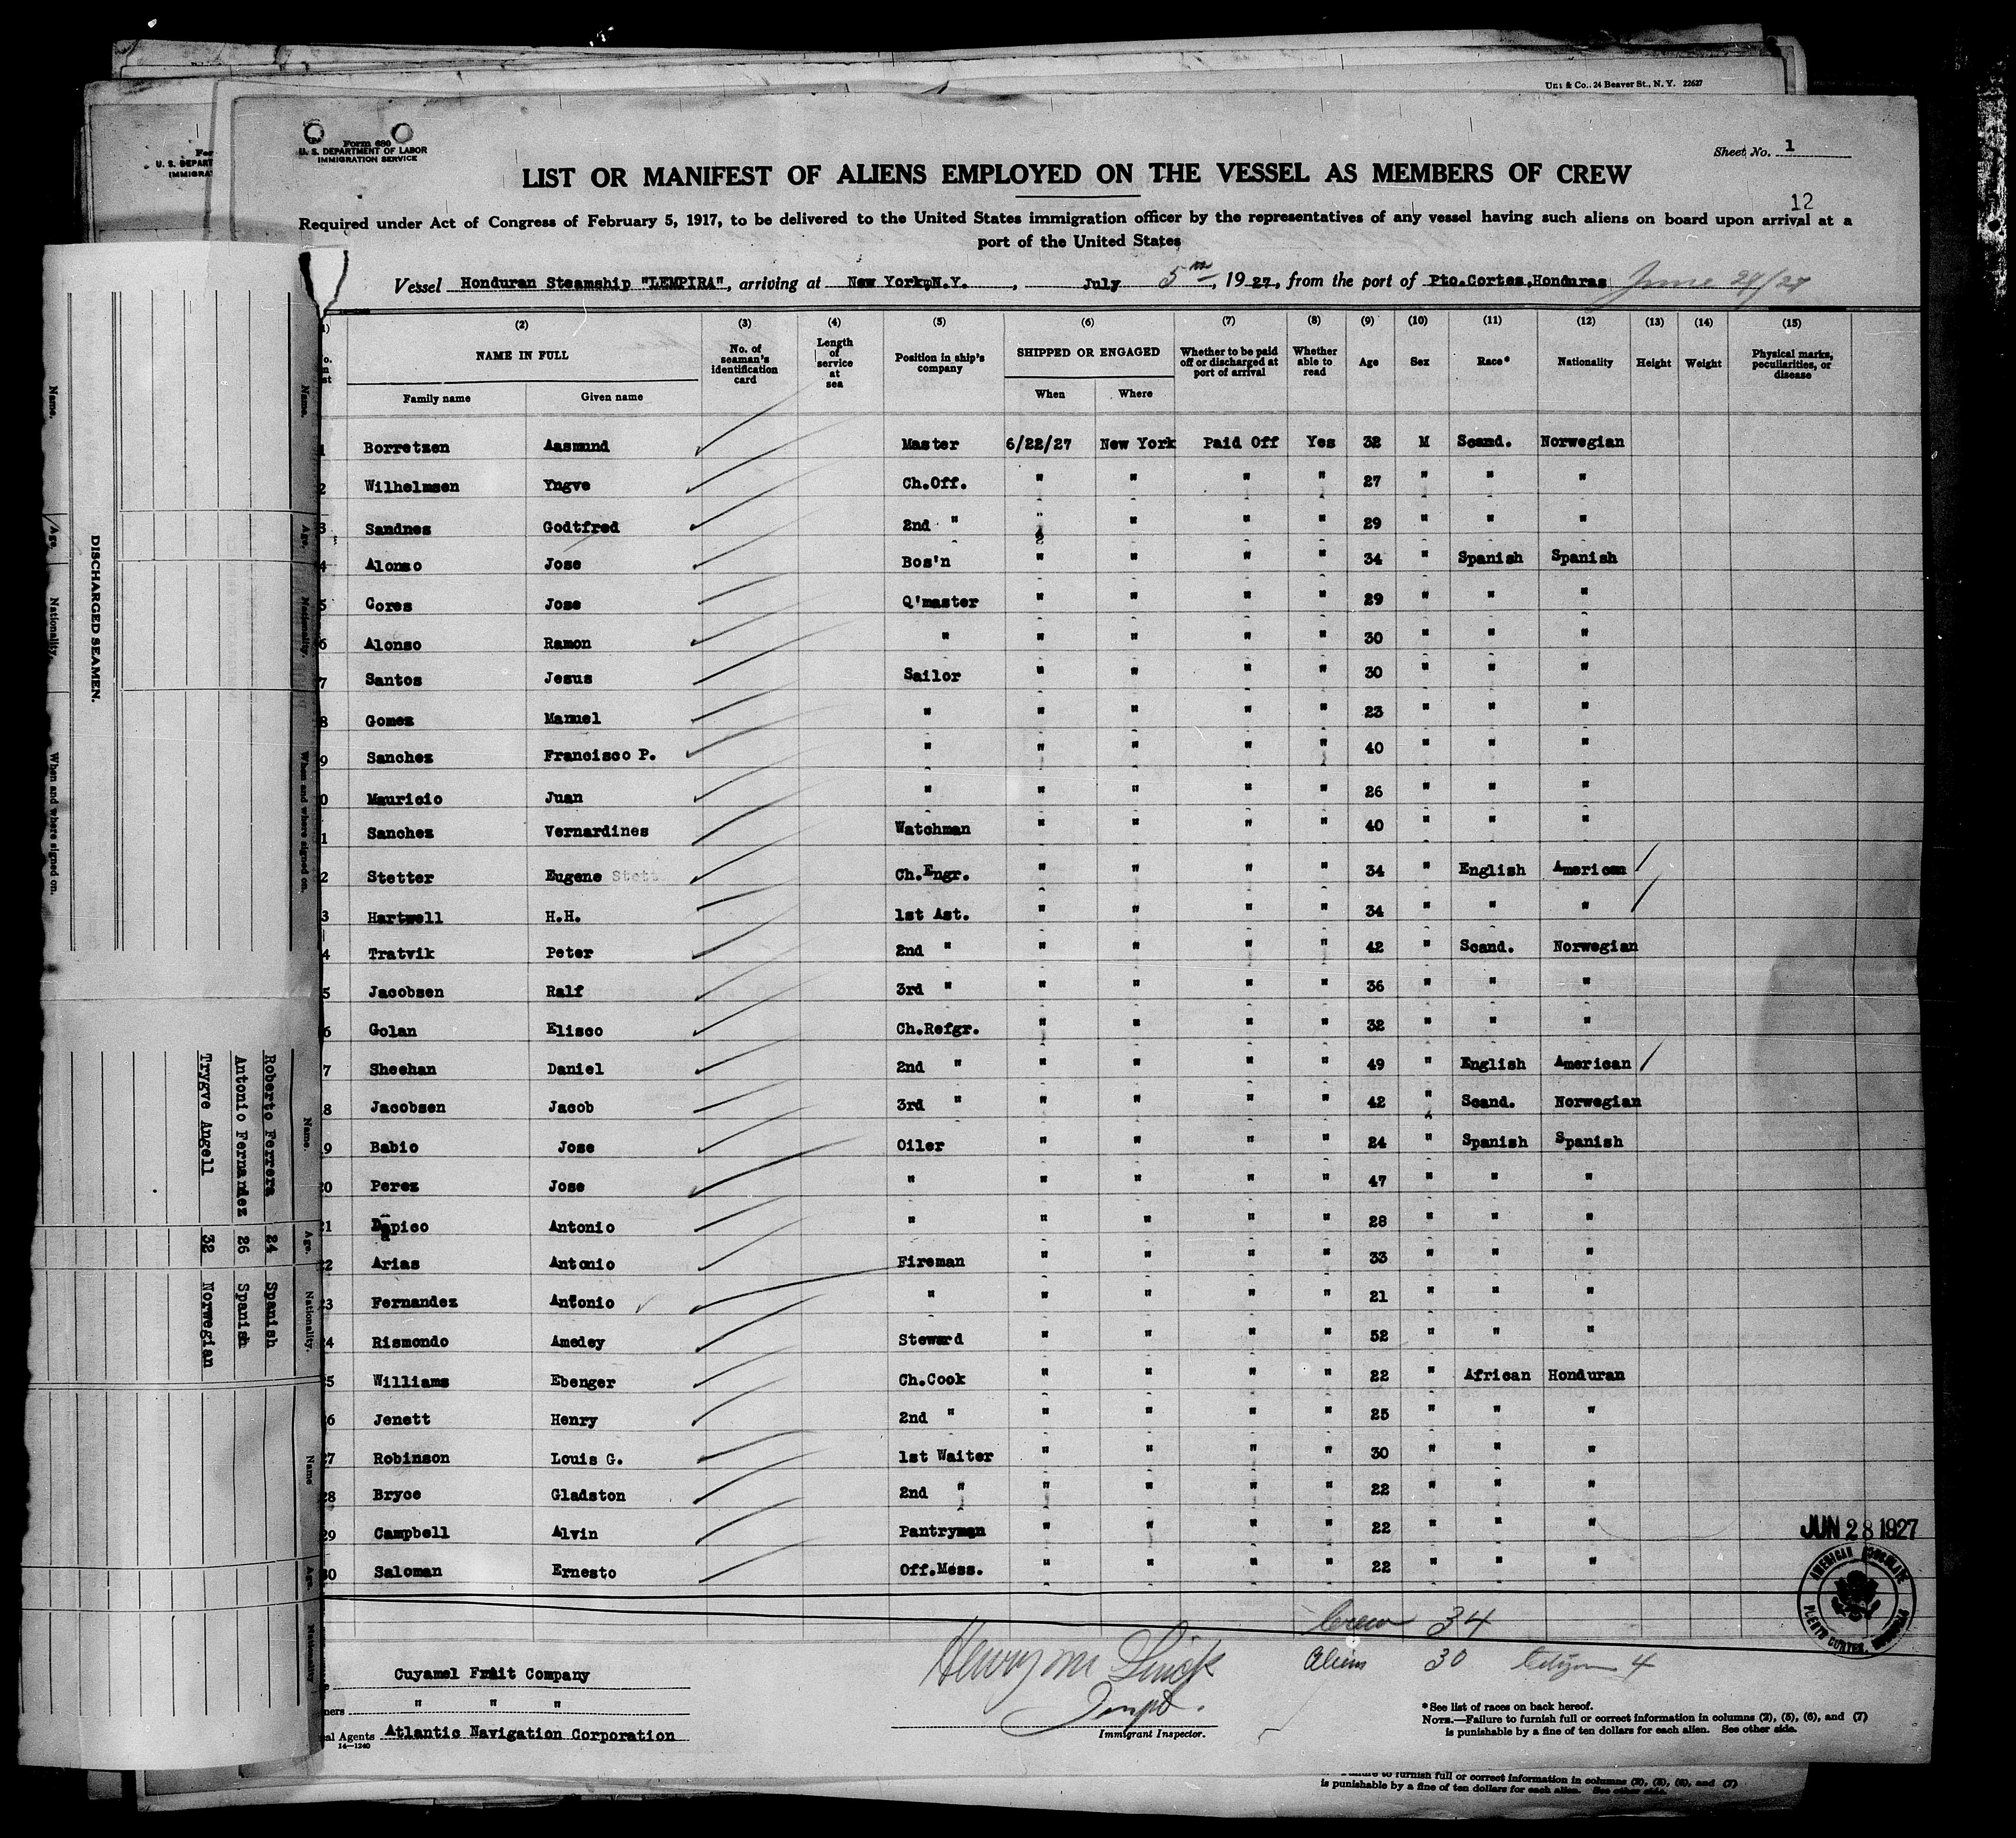 Uni & Co., 24 Beaver St., N. Y. 22627
Form 680
U. S. DEPARTMENT OF LABOR
IMMIGRATION SERVICE
U. S. DEPART
IMMIGRA
Sheet No. 1
LIST OR MANIFEST OF ALIENS EMPLOYED ON THE VESSEL AS MEMBERS OF CREW
12
Required under Act of Congress of February 5, 1917, to be delivered to the United States immigration officer by the representatives of any vessel having such aliens on board upon arrival at a
port of the United States
Vessel Honduran Steamship "LEMPIRA", arriving at New York, N.Y., July 5th, 1927, from the port of Pto. Cortes, Honduras June 29/27
(2) (3) (4) (5) (6) (7) (8) (9) (10) (11) (12) (13) (14) (15)
NAME IN FULL No. of seaman's identification card Length of service at sea Position in ship's company SHIPPED OR ENGAGED Whether to be paid off or discharged at port of arrival Whether able to read Age Sex Race* Nationality Height Weight Physical marks, peculiarities, or disease
Family name Given name When Where
1 Borretzen Aasmund Master 6/22/27 New York Paid Off Yes 32 M Scand. Norwegian
2 Wilhelmsen Yngve Ch.Off. " " " " 27 " " "
3 Sandnes Godtfred 2nd " " " " " 29 " " "
4 Alonso Jose Bos'n " " " " 34 " Spanish Spanish
5 Cores Jose Q'master " " " " 29 " " "
6 Alonso Ramon " " " " " 30 " " "
7 Santos Jesus Sailor " " " " 30 " " "
8 Gomez Manuel " " " " " 23 " " "
9 Sanchez Francisco P. " " " " " 40 " " "
0 Mauricio Juan " " " " " 26 " " "
1 Sanchez Vernardines Watchman " " " " 40 " " "
2 Stetter Eugene Stett Ch.Engr. " " " " 34 " English American
3 Hartwell H.H. 1st Ast. " " " " 34 " " "
4 Tratvik Peter 2nd " " " " " 42 " Scand. Norwegian
5 Jacobsen Ralf 3rd " " " " " 36 " " "
6 Golan Elisco Ch.Refgr. " " " " 32 " " "
7 Sheehan Daniel 2nd " " " " " 49 " English American
8 Jacobsen Jacob 3rd " " " " " 42 " Scand. Norwegian
9 Babio Jose Oiler " " " " 24 " Spanish Spanish
20 Perez Jose " " " " " 47 " " "
21 Dapico Antonio " " " " " 28 " " "
22 Arias Antonio Fireman " " " " 33 " " "
23 Fernandez Antonio " " " " " 21 " " "
24 Rismondo Amedey Steward " " " " 52 " " "
25 Williams Ebenger Ch.Cook " " " " 22 " African Honduran
26 Jenett Henry 2nd " " " " " 25 " " "
27 Robinson Louis G. 1st Waiter " " " " 30 " " "
28 Bryce Gladston 2nd " " " " " 22 " " "
29 Campbell Alvin Pantryman " " " " 22 " " "
30 Saloman Ernesto Off.Mess. " " " " 22 " " "
JUN 28 1927
AMERICAN CONSULATE
PUERTO CORTES, HONDURAS
Crew 34
Aliens 30 Citizen 4
Cuyamel Fruit Company
" " "
ners
al Agents Atlantic Navigation Corporation
14—1240
Immigrant Inspector.
*See list of races on back hereof.
NOTE.—Failure to furnish full or correct information in columns (2), (5), (6), and (7)
is punishable by a fine of ten dollars for each alien. See other side.
Failure to furnish full or correct information in columns (2), (5), (6), and (7)
is punishable by a fine of ten dollars for each alien. See other side.
DISCHARGED SEAMEN.
Name. Age. Nationality. When and where signed on.
Name. Age. Nationality. When and where signed on.
Name. Age. Nationality.
Roberto Ferrera 24 Spanish
Antonio Fernandez 26 Spanish
Trygve Angell 32 Norwegian
Name Age. Nationality